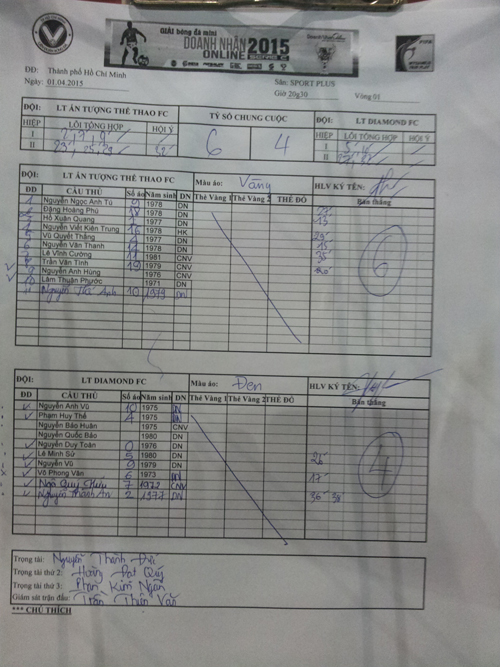 GIẢI bóng đá mini
DOANH NHÂN 2015
ONLINE
FIFA
ĐĐ: Thành phố Hồ Chí Minh
Ngày: 01.04.2015
Sân: SPORT PLUS
Giờ 20g30 Vòng 01
ĐỘI: LT ẤN TƯỢNG THỂ THAO FC TỶ SỐ CHUNG CUỘC LT DIAMOND FC
HIỆP LỖI TỔNG HỢP HỘI Ý 6 4 HIỆP LỖI TỔNG HỢP HỘI Ý
I I
II II
ĐỘI: LT ẤN TƯỢNG THỂ THAO FC Màu áo: Vàng HLV KÝ TÊN:
ĐD CẦU THỦ Số áo Năm sinh DN Thẻ Vàng 1 Thẻ Vàng 2 THẺ ĐỎ Bàn thắng
Nguyễn Ngọc Anh Tú 9 1978 DN
Đặng Hoàng Phú 18 1977 DN
Hồ Xuân Quang 1977 DN 13
Nguyễn Viết Kiên Trung 16 1978 HK
Vũ Quyết Thắng 1977 DN
Nguyễn Văn Thanh 1978 DN 15
Lê Vĩnh Cường 11 1981 CNV 35
Trần Văn Tính 19 1979 CNV
Nguyễn Anh Hùng 1976 CNV
Lâm Thuận Phước 1971 DN
11 Nguyễn Thế Anh 10 1979 DN
6
ĐỘI: LT DIAMOND FC Màu áo: Đen HLV KÝ TÊN:
ĐD CẦU THỦ Số áo Năm sinh DN Thẻ Vàng 1 Thẻ Vàng 2 THẺ ĐỎ Bàn thắng
Nguyễn Anh Vũ 10 1975 DN
Phạm Huy Thể 4 1975 DN
Nguyễn Bảo Huân 1975 CNV
Nguyễn Quốc Bảo 1980 DN
Nguyễn Duy Toàn 0 1978 DN
Lê Minh Sử 5 1980 DN
Nguyễn Vũ 9 1979 DN
Võ Phong Vân 6 1973 DN 17
Ngô Quý Hữu 7 1972 CNV
Nguyễn Thành An 2 1977 DN 36 38
4
Trọng tài: Nguyễn Thanh
Trọng tài thứ 2: Hoàng Đạt Quý
Trọng tài thứ 3: Phan Kim Ngân
Giám sát trận đấu: Trần Thiện Văn
*** CHÚ THÍCH